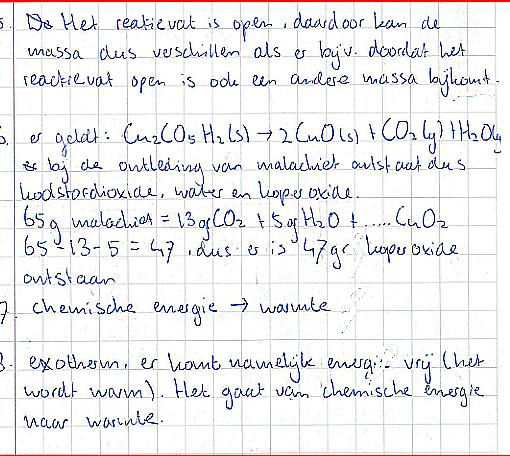 5. De Het reactievat is open, daardoor kan de
massa dus verschillen als er bijv. doordat het
reactievat open is ook een andere massa bijkomt.
6. er geldt: Cu2CO5H2(s) → 2CuO(s) + CO2(g) + H2O(g)
bij de ontleding van malachiet ontstaat dus
koolstofdioxide, water en koperoxide.
65g malachiet = 13g CO2 + 5g H2O + ..... CuO2
65-13-5 = 47, dus er is 47 gr. koperoxide
ontstaan
7. chemische energie → warmte
8. exotherm, er komt namelijk energie vrij (het
wordt warm). Het gaat van chemische energie
naar warmte.